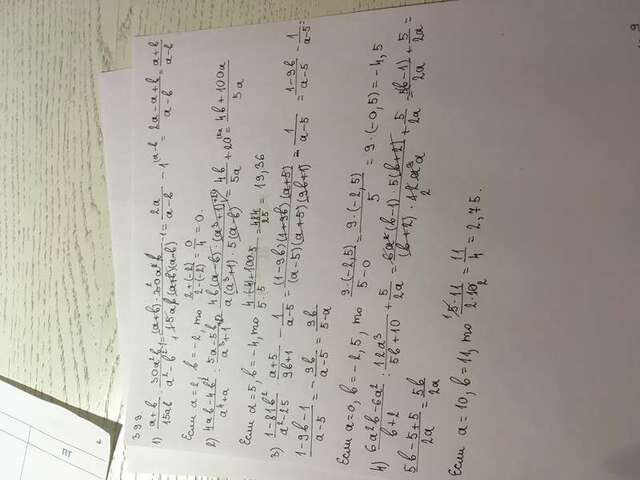 ПТ
399.
1) \frac{a+b}{15ab} \cdot \frac{30a^2b}{a^2-b^2} - 1 = \frac{(a+b) \cdot 30a^2b}{15ab(a+b)(a-b)} - 1 = \frac{2a}{a-b} - 1 = \frac{2a-a+b}{a-b} = \frac{a+b}{a-b}
Если a=2, b=-2, то \frac{2+(-2)}{2-(-2)} = \frac{0}{4} = 0.
2) \frac{4ab-4b^2}{a^4+a} : \frac{5a-5b}{a^3+1} + 20 = \frac{4b(a-b) \cdot (a^3+1)}{a(a^3+1) \cdot 5(a-b)} + 20 = \frac{4b}{5a} + 20 = \frac{4b+100a}{5a}
Если a=5, b=-4, то \frac{4 \cdot (-4)+100 \cdot 5}{5 \cdot 5} = \frac{484}{25} = 19,36
3) \frac{1-81b^2}{a^2-25} \cdot \frac{a+5}{9b+1} - \frac{1}{a-5} = \frac{(1-9b)(1+9b)(a+5)}{(a-5)(a+5)(9b+1)} - \frac{1}{a-5} = \frac{1-9b}{a-5} - \frac{1}{a-5} =
\frac{1-9b-1}{a-5} = -\frac{9b}{a-5} = \frac{9b}{5-a}
Если a=0, b=-2,5, то \frac{9 \cdot (-2,5)}{5-0} = \frac{9 \cdot (-2,5)}{5} = 9 \cdot (-0,5) = -4,5
4) \frac{6a^2b-6a^2}{b+2} : \frac{12a^3}{5b+10} + \frac{5}{2a} = \frac{6a^2(b-1) \cdot 5(b+2)}{(b+2) \cdot 12a^3} + \frac{5}{2a} = \frac{5(b-1)}{2a} + \frac{5}{2a} =
\frac{5b-5+5}{2a} = \frac{5b}{2a}
Если a=10, b=11, то \frac{5 \cdot 11}{2 \cdot 10} = \frac{11}{4} = 2,75.
9